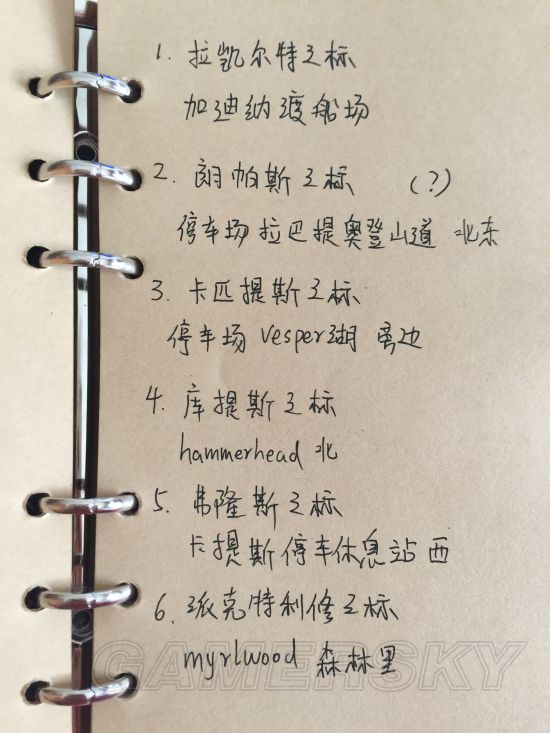 1. 拉凯尔特之标
加迪纳渡船场
2. 朗帕斯之标 (?)
停车场拉巴提奥登山道 北东
3. 卡匹提斯之标
停车场 Vesper湖 旁边
4. 库提斯之标
hammerhead 北
5. 弗隆斯之标
卡提斯停车休息站 西
6. 派克特利修之标
myrlwood 森林里
GAMERSKY